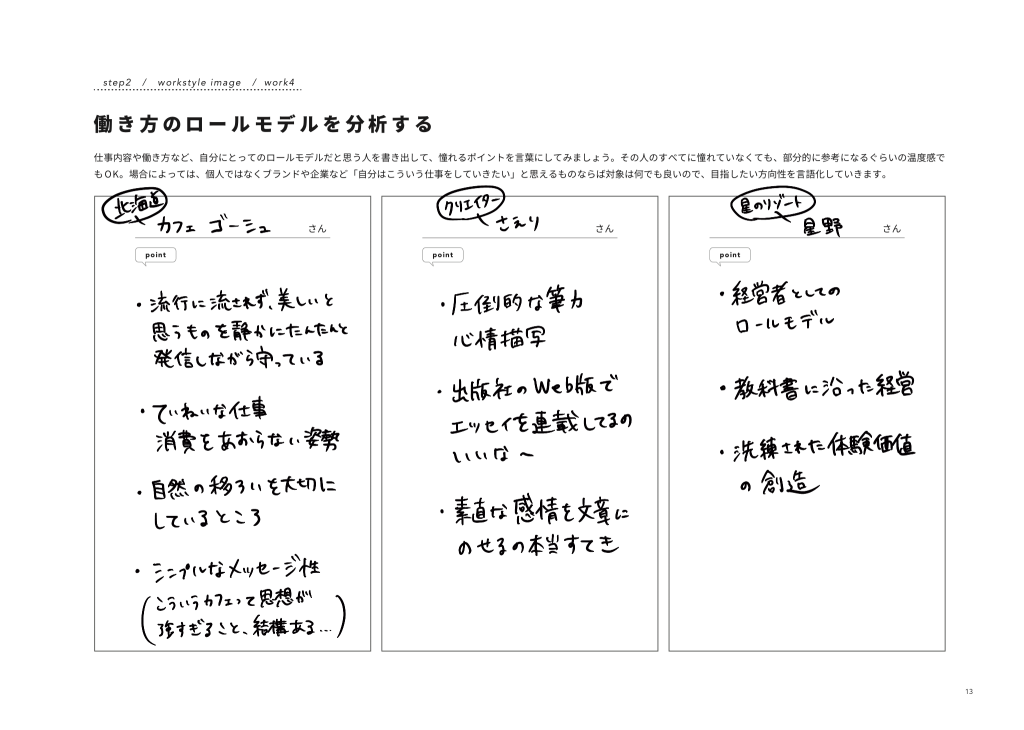 step2 / workstyle image / work4
働き方のロールモデルを分析する
仕事内容や働き方など、自分にとってのロールモデルだと思う人を書き出して、憧れるポイントを言葉にしてみましょう。その人のすべてに憧れていなくても、部分的に参考になるぐらいの温度感で
もOK。場合によっては、個人ではなくブランドや企業など「自分はこういう仕事をしていきたい」と思えるものならば対象は何でも良いので、目指したい方向性を言語化していきます。
北海道
カフェ ゴーシュ さん
point
・流行に流されず、美しいと
思うものを静かにたんたんと
発信しながら守っている
・ていねいな仕事
消費をあおらない姿勢
・自然の移ろいを大切に
しているところ
・シンプルなメッセージ性
(こういうカフェって思想が
強すぎること、結構ある…)
クリエイター
さえり さん
point
・圧倒的な筆力
心情描写
・出版社のWeb版で
エッセイを連載してるの
いいな〜
・素直な感情を文章に
のせるの本当すてき
星のリゾート
星野 さん
point
・経営者としての
ロールモデル
・教科書に沿った経営
・洗練された体験価値
の創造
13